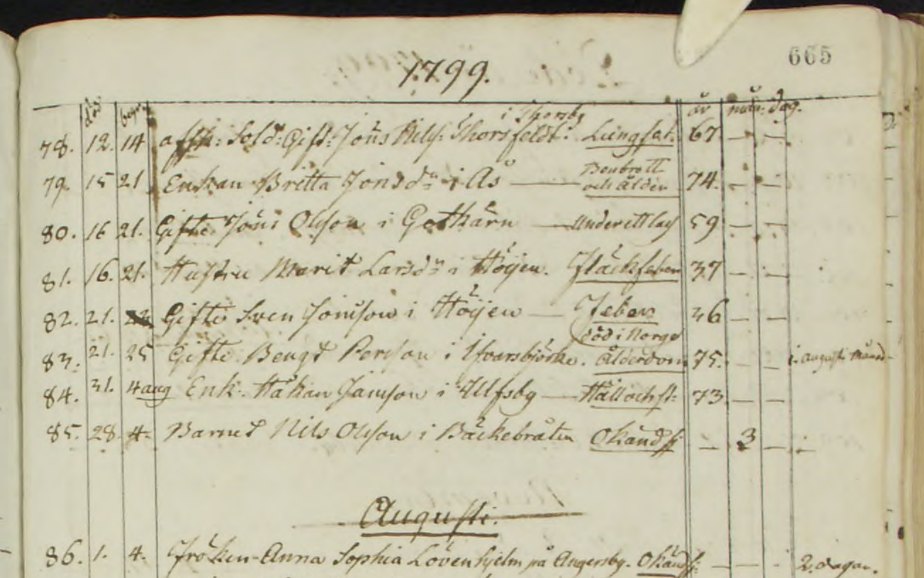 665
1799.
död begr. år mån: dag.
i Thorsby
78. 12. 14 afsk: Sold: Gift: Jöns Nils: Thorsfeldt. Lungsot: 67 — —
Benbrott
79. 15 21. Enkan Britta Jonsdr i Ås — och Ålder 74. — —
80. 16 21. Gifte Jöns Olsson i Gothärn — Underittlag 59 — —
81. 16. 21. Hustru Marit Larsdr i Höijen. Fläckfeber 37 — —
82. 21. Gifte Sven Jonsson i Höijen — Feber 36 — —
död i Norge
83. 21. 25 Gifte Bengt Persson i Ålderdom 75. — — i Augusti Månad
84. 31. 4 aug Enk. Håkan Jansson i Ulfsby — Håll och st: 73 — —
85. 28 4. Barnet Nils Olsson i Bäckebråten Okänd sj: — 3 — —
Augusti.
86. 1. 4. Fröken Anna Sophia Lövenhjelm på Angersby. Okänd sj: — — 2 dagar.